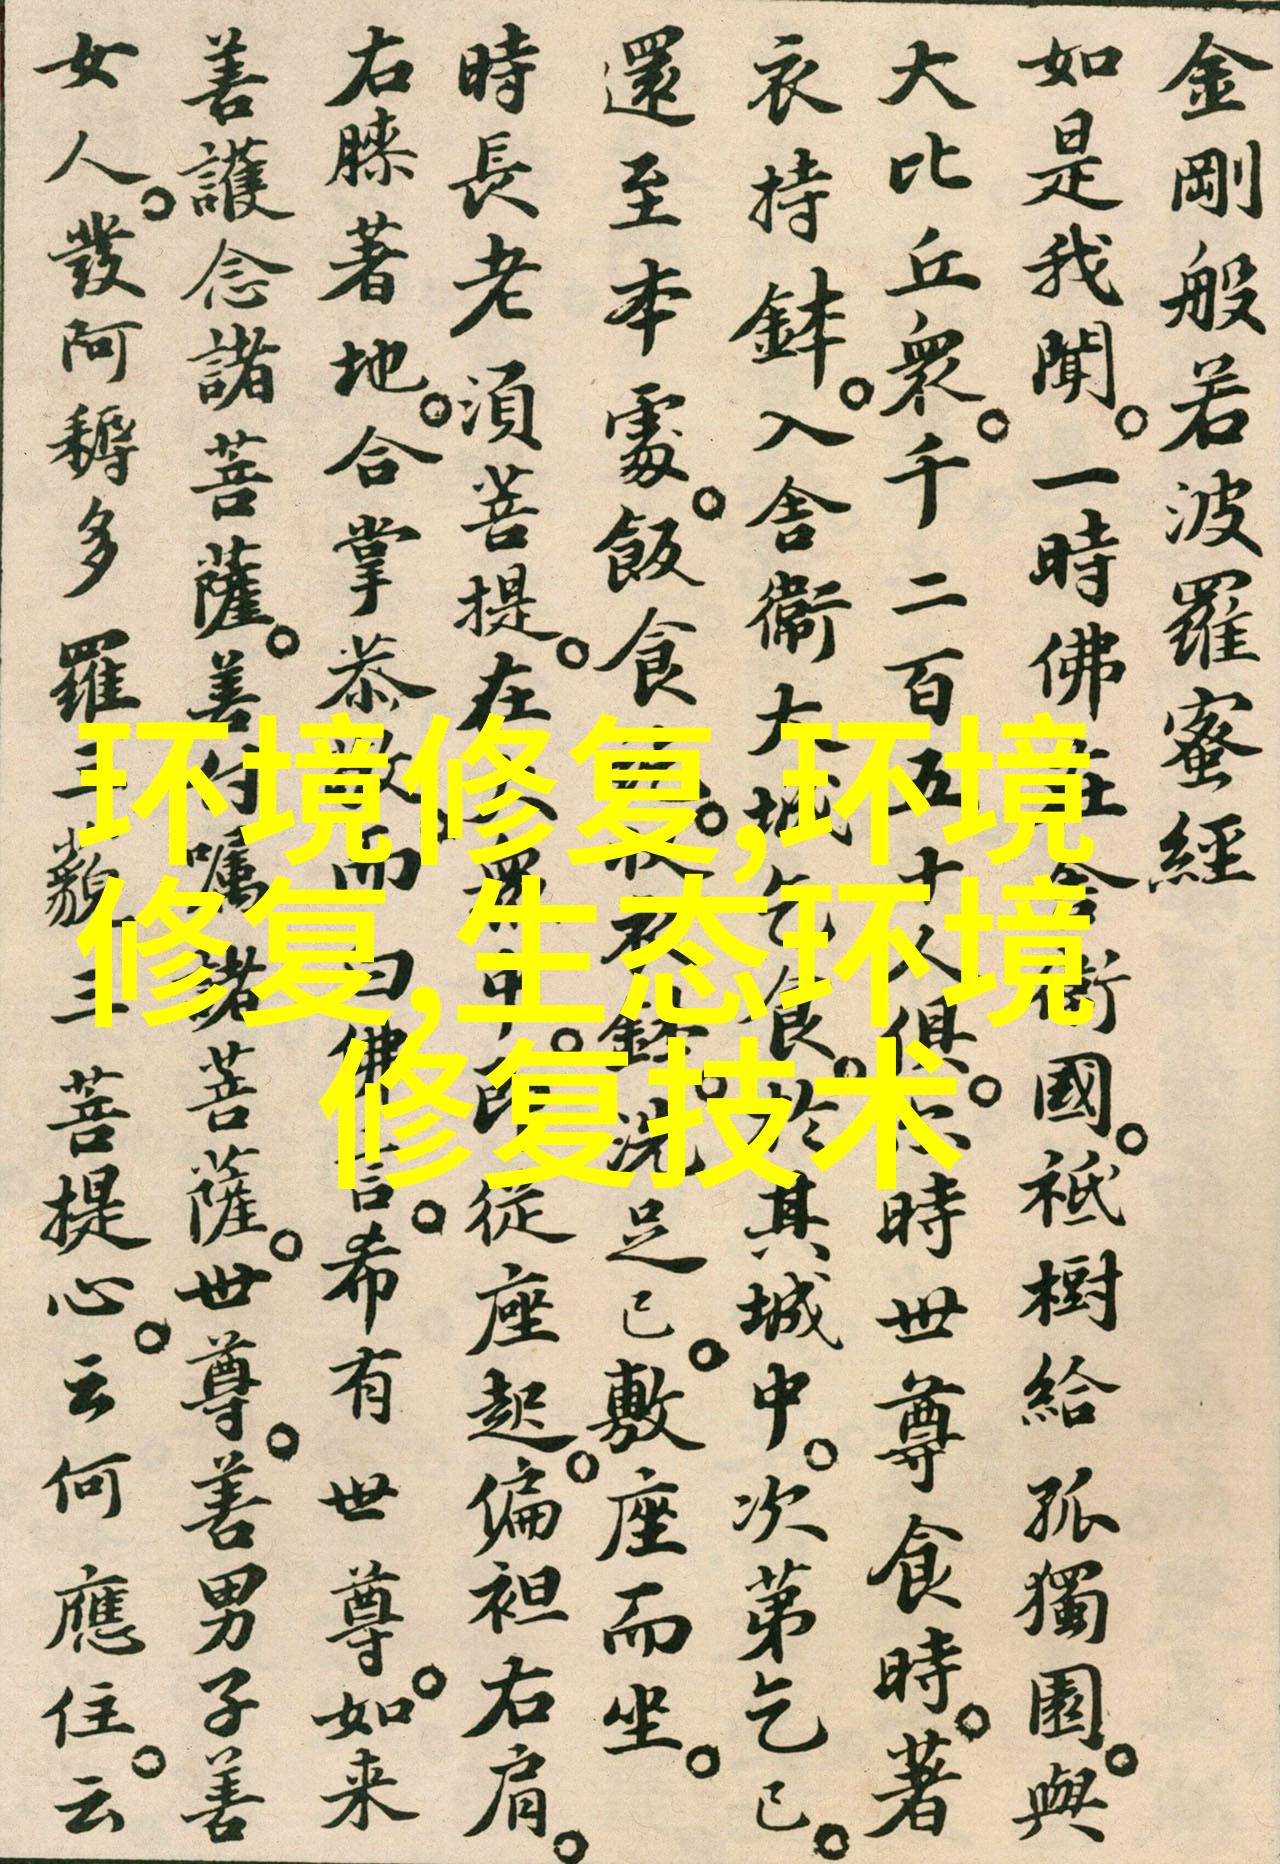 金剛般若波羅蜜經
如是我聞。一時佛在舍衛國。祗樹給孤獨園。與
大比丘眾。千二百五十人俱。尒時世尊食時。著
衣持鉢。入舍衛大城乞食。於其城中。次第乞已。
還至本處。飯食訖。收衣鉢。洗足已。敷座而坐。
時長老須菩提。在大眾中。即從座起。偏袒右肩。
右膝著地。合掌恭敬。而白佛言。希有世尊。如来
善護念諸菩薩。善付嘱諸菩薩。世尊。善男子善
女人。發阿耨多羅三藐三菩提心。云何應住。云
环境修复,环境
修复,生态环境
修复技术